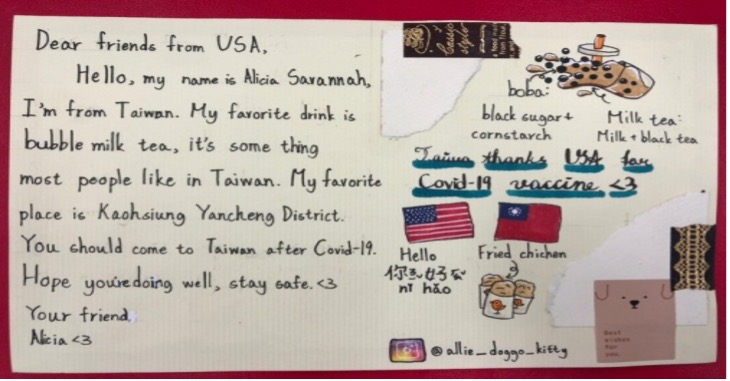 Dear friends from USA,
Hello, my name is Alicia Savannah,
I'm from Taiwan. My favorite drink is
bubble milk tea, it's some thing
most people like in Taiwan. My favorite
place is Kaohsiung Yancheng District.
You should come to Taiwan after Covid-19.
Hope you're doing well, stay safe. <3
Your friend,
Alicia <3
boba:
black sugar +
cornstarch
Milk tea:
Milk + black tea
Taiwan thanks USA for
Covid-19 vaccine <3
Hello
你ㄋㄧˇ好ㄏㄠˇ
nǐ hǎo
Fried chicken
@allie_doggo_kitty
Best
wishes
for
you.